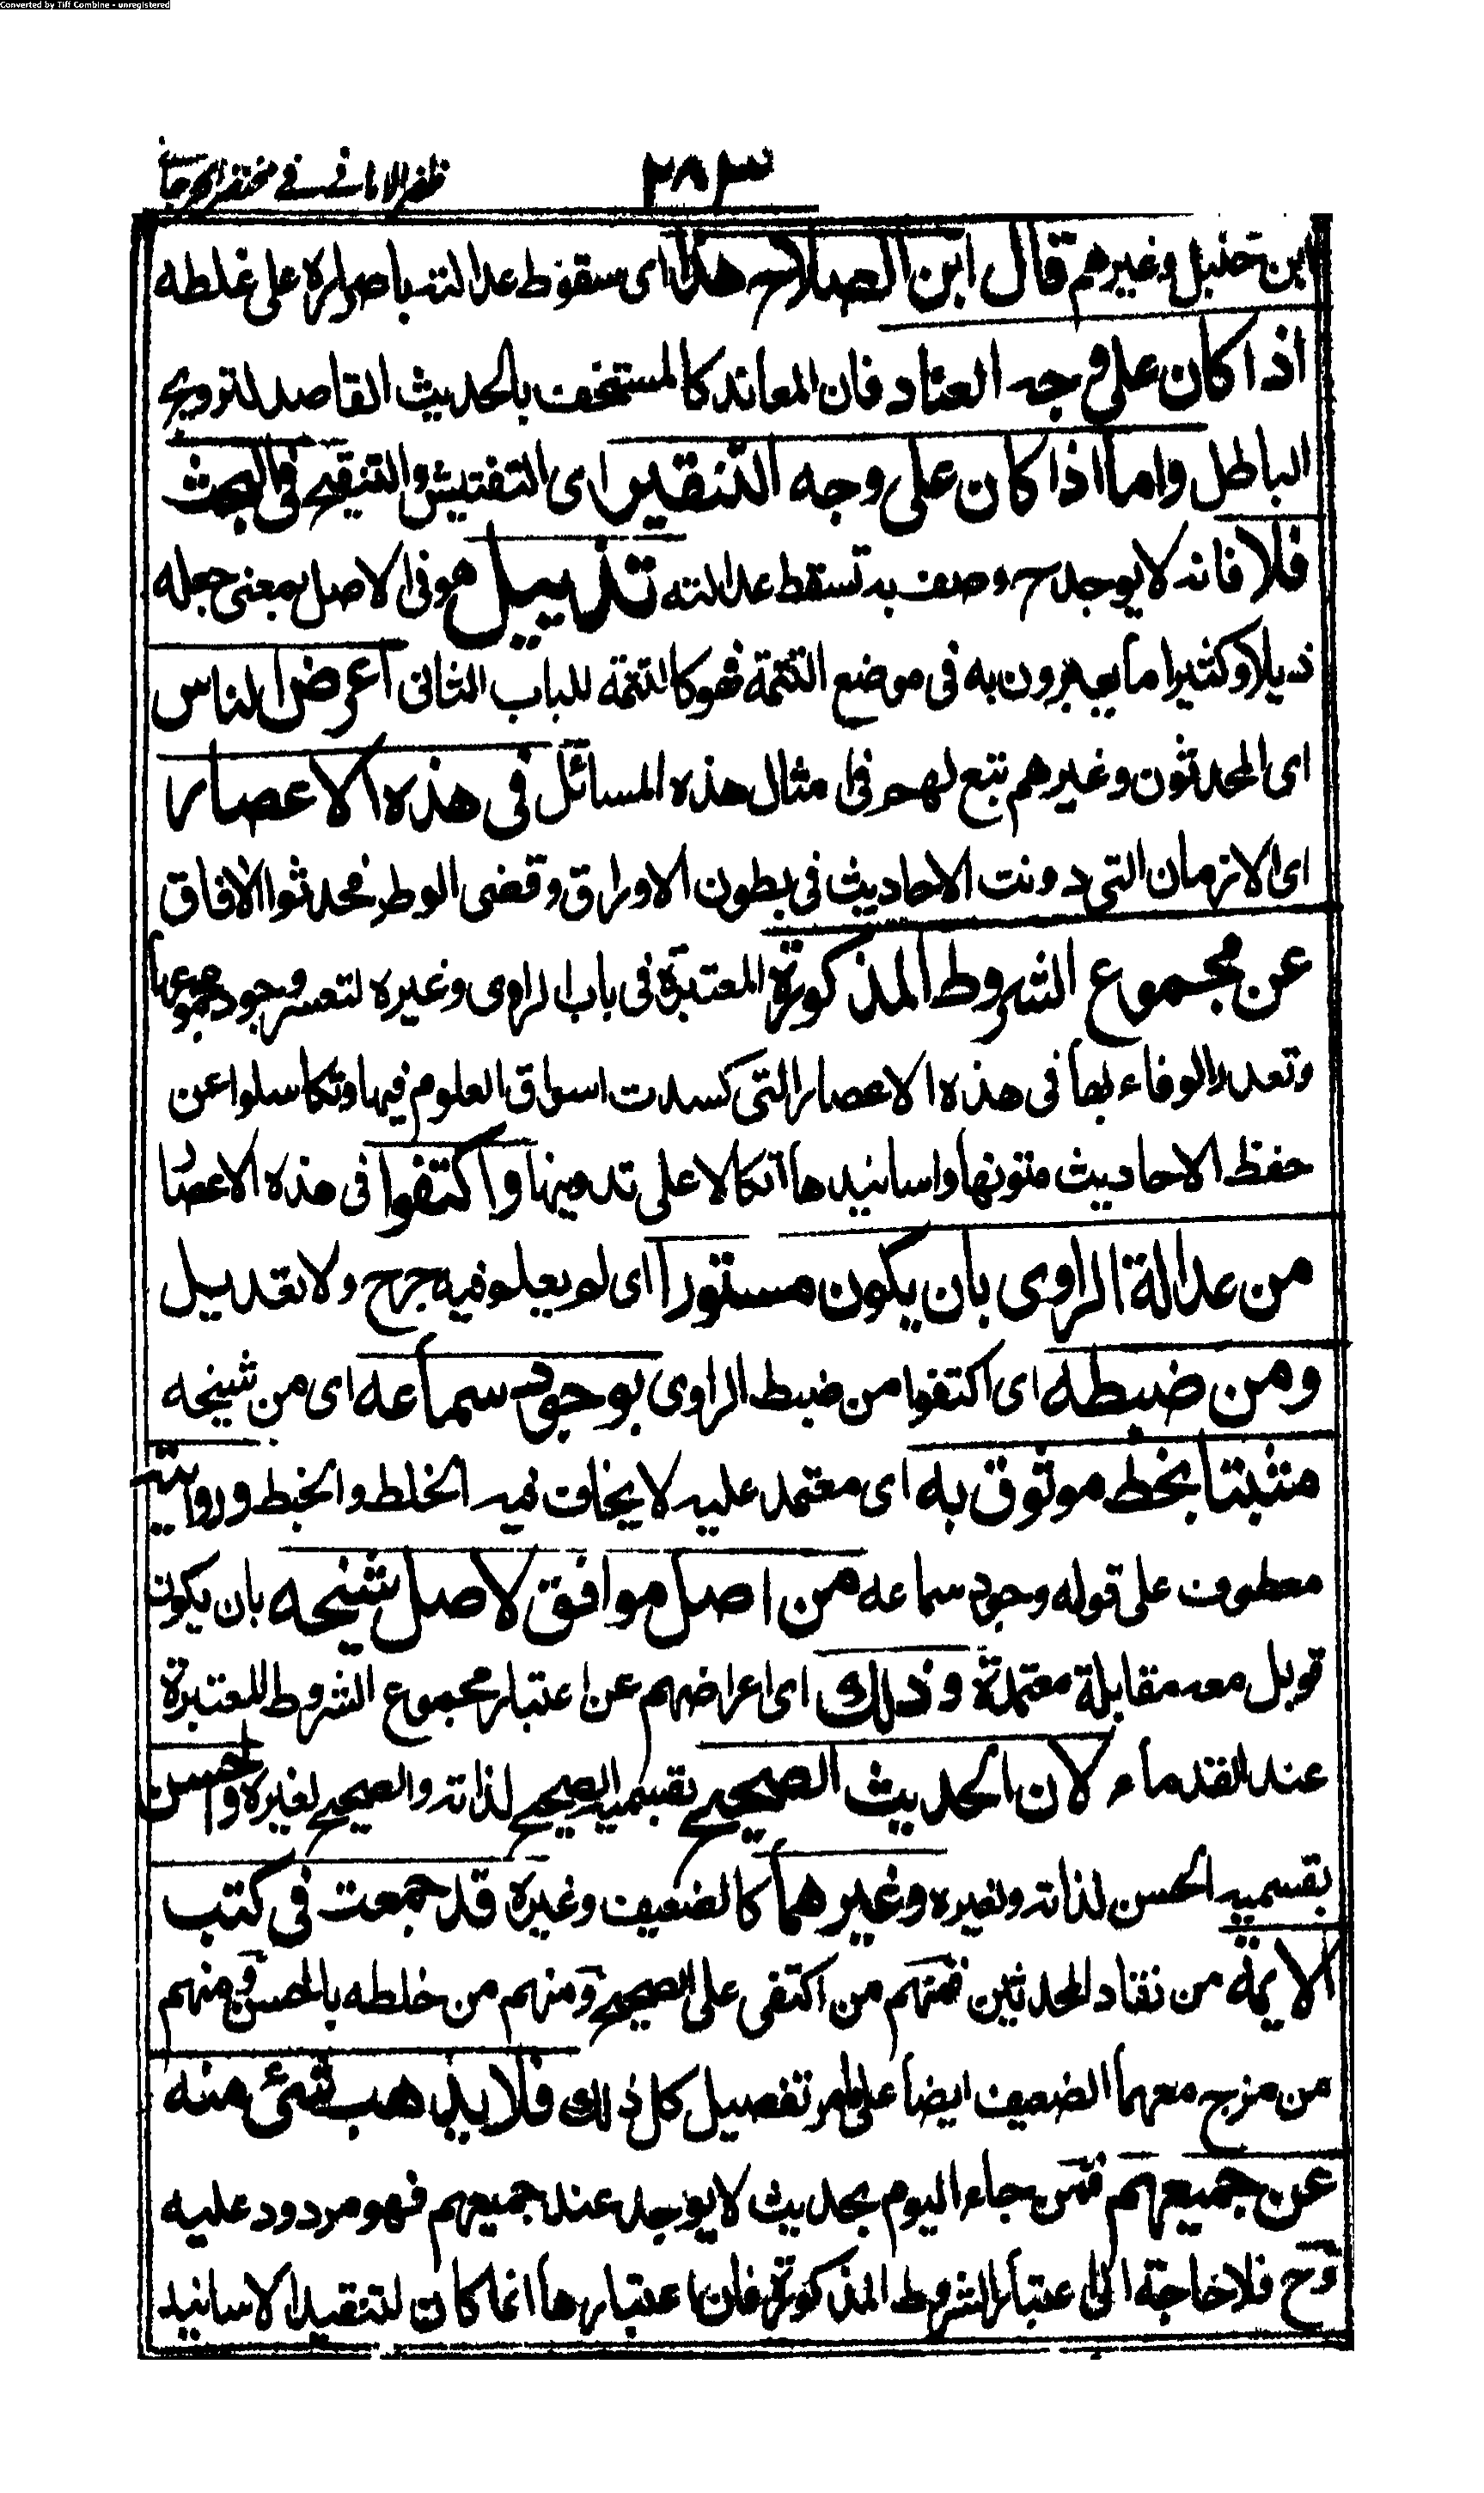 Converted by Tiff Combine - unregistered
٢٨٣
ظفر الامانے فے مختصر الجرجانے
ابن حنبل وغيرهم قال ابن الصلاح هذا اى سقوط عدالته باصراره على غلطه
اذا كان على وجه العناد فان المعاند كالمستخف بالحديث القاصد لترويج
الباطل واما اذا كان على وجه التنقير اى التفتيش والتنقيح فى البحث
فلا فانه لا يوجد ح وصف به تسقط عدالته تذييل هو فى الاصل بمعنى جعله
ذيلا وكثيرا ما يعبرون به فى موضع التتمة فهو كالتتمة للباب الثانى اعرض الناس
اى المحدثون وغيرهم تبع لهم فى امثال هذه المسائل فى هذه الاعصار
اى الازمان التى دونت الاحاديث فى بطون الاوراق وقضى الوطر محدثوا الآفاق
عن مجموع الشروط المذكورة المعتبرة فى باب الراوى وغيره لتعسر وجود مجموعها
وتعذر الوفاء بها فى هذه الاعصار التى كسدت اسواق العلوم فيها وتكاسلوا عن
حفظ الاحاديث متونها واسانيدها اتكالا على تدوينها واكتفوا فى هذه الاعصار
من عدالة الراوى بان يكون مستورا اى لم يعلم فيه جرح ولا تعديل
ومن ضبطه اى اكتفوا من ضبط الراوى بوجود سماعه اى من شيخه
مثبتا بخط موثوق به اى معتمد عليه لا يخاف فيه الخلط والخبط وروايته
معطوف على قوله وجود سماعه من اصل موافق لاصل شيخه بان يكون
قوبل معه مقابلة معتمدة وذلك اى اعراضهم عن اعتبار مجموع الشروط المعتبرة
عند القدماء لان الحديث الصحيح بقسميه الصحيح لذاته والصحيح لغيره والحسن
بقسميه الحسن لذاته ولغيره وغيرهما كالضعيف وغيره قد جمعت فى كتب
الائمة من نقاد المحدثين فمنهم من اكتفى على الصحيح ومنهم من خلطه بالحسن ومنهم
من مزج معهما الضعيف ايضا على ما مر تفصيل كل ذلك فلا يذهب شئ منه
عن جميعهم فمن جاء اليوم بحديث لا يوجد عند جميعهم فهو مردود عليه
وح فلا حاجة الى اعتبار الشروط المذكورة فان اعتبارها انما كان لتنقيد الاسانيد